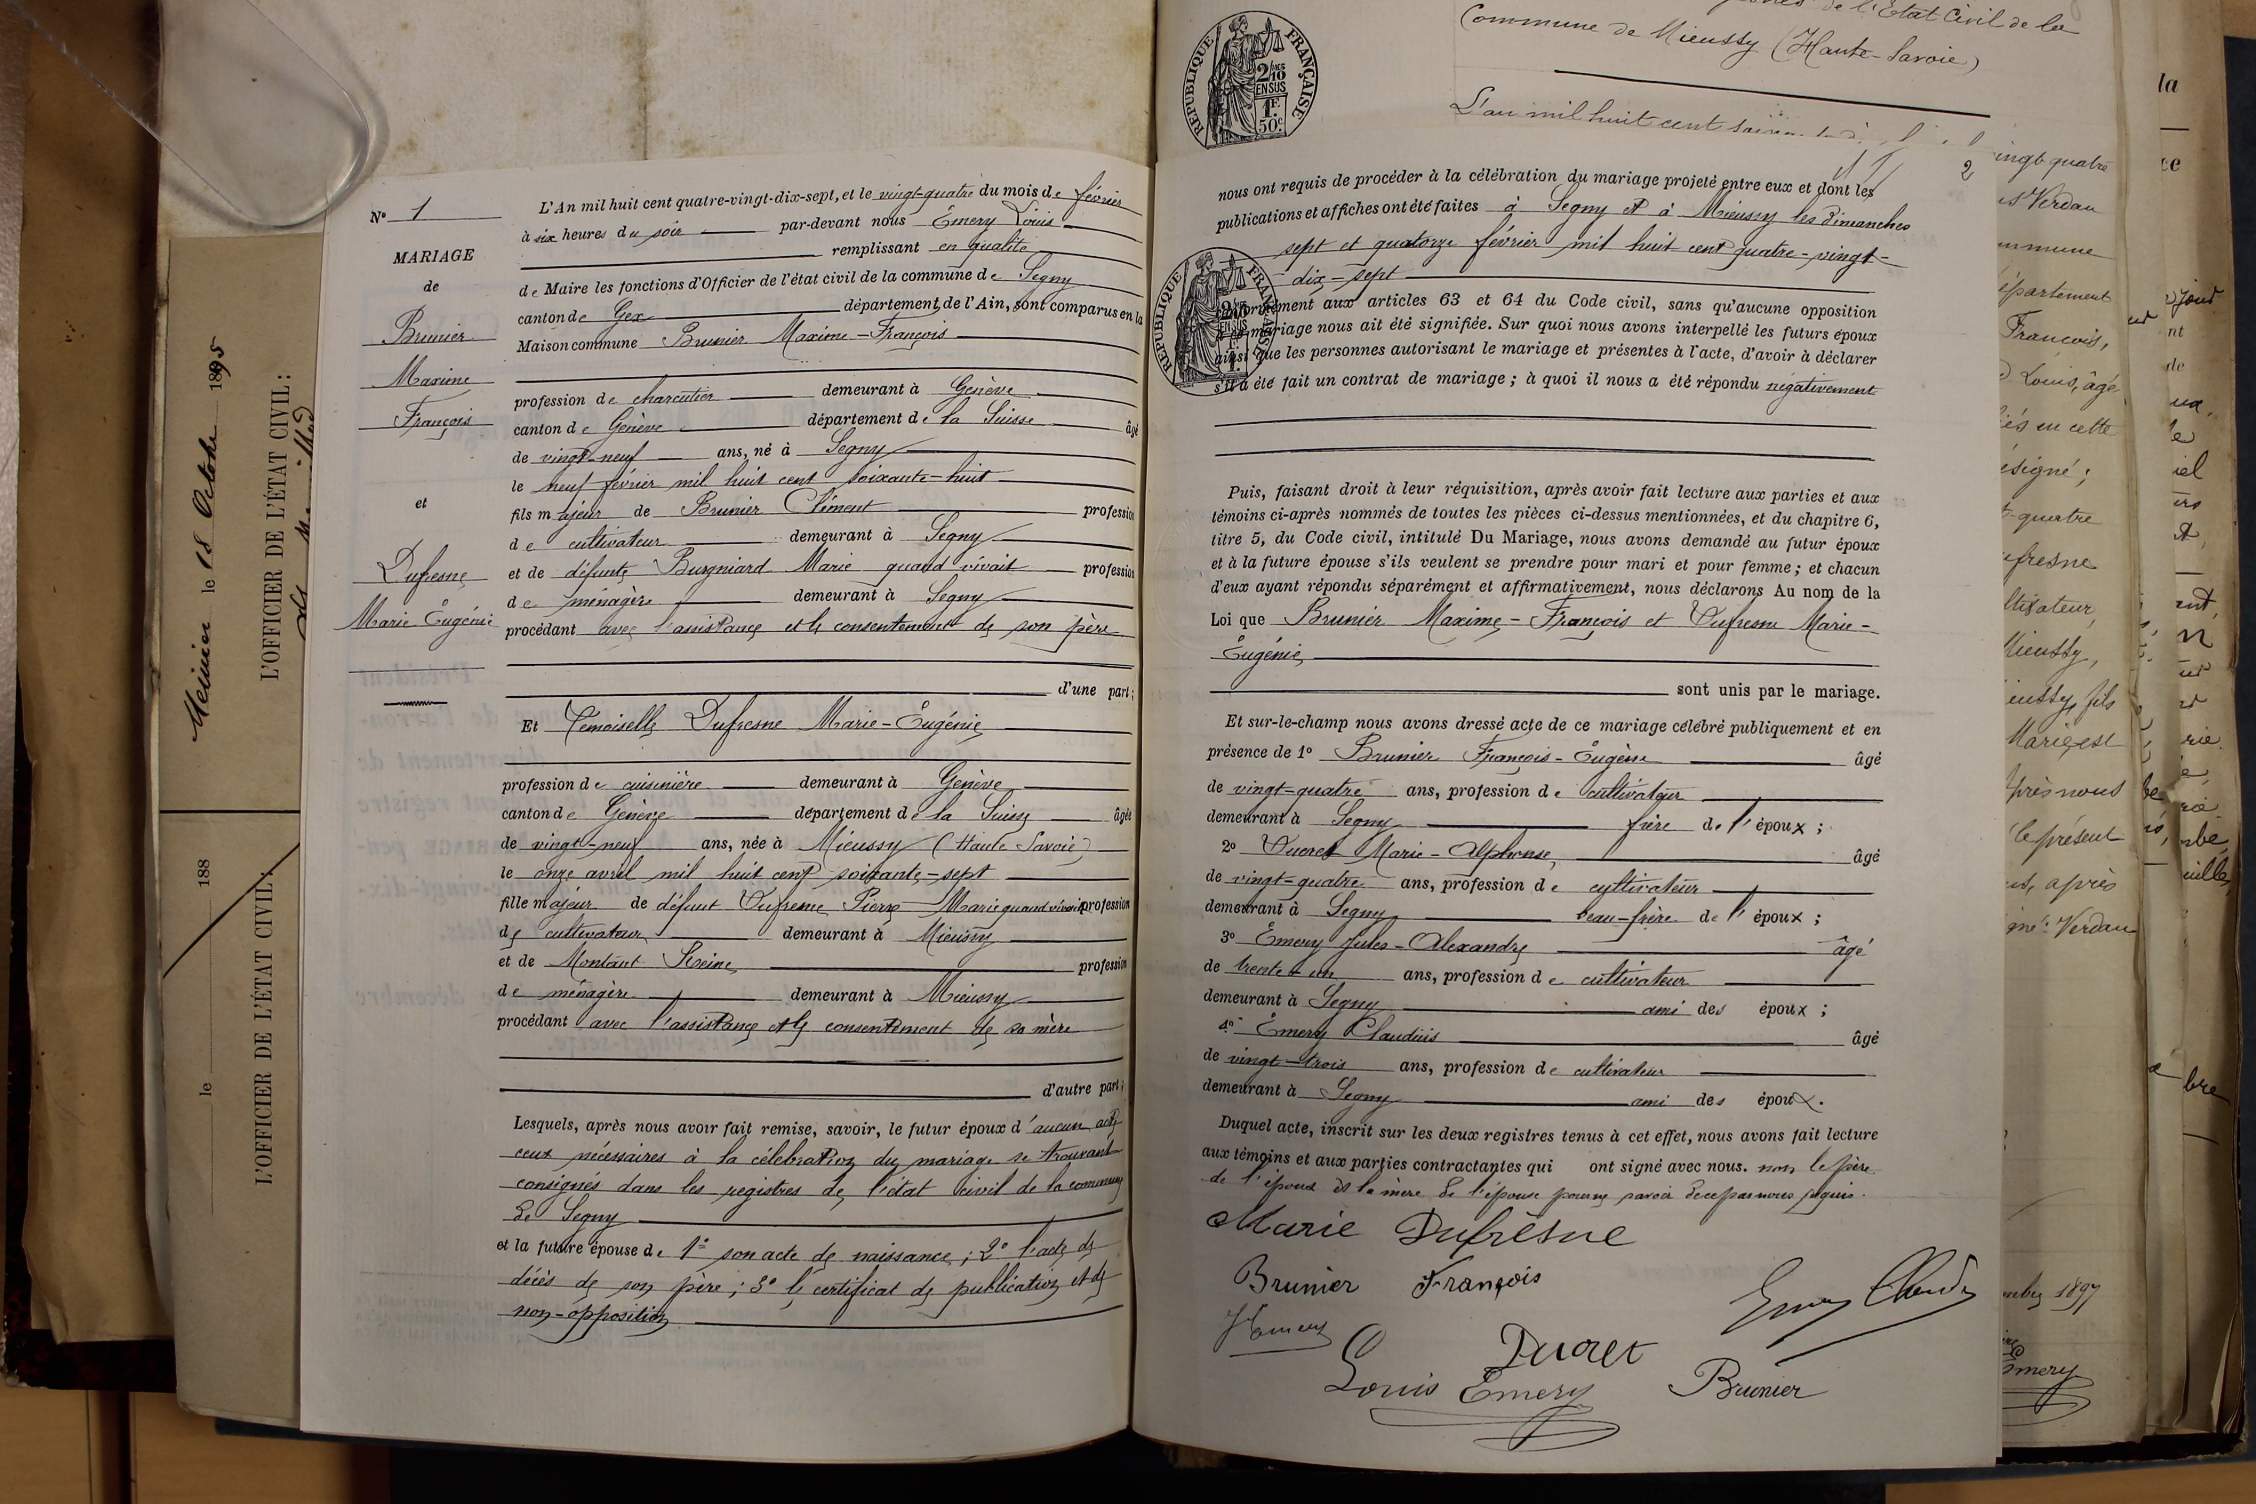 Meinier le 18 Octobre 1895
L'OFFICIER DE L'ÉTAT CIVIL :
le 188
L'OFFICIER DE L'ÉTAT CIVIL :
N° 1
MARIAGE
de
Brunier
Maxime
François
et
Dufresne
Marie Eugénie
L'An mil huit cent quatre-vingt-dix-sept, et le vingt-quatre du mois de février
à six heures du soir par-devant nous Émery Louis
remplissant en qualité
de Maire les fonctions d'Officier de l'état civil de la commune de Segny
canton de Gex département de l'Ain, sont comparus en la
Maison commune Brunier Maxime-François
profession de charcutier demeurant à Genève
canton de Genève département de la Suisse âgé
de vingt-neuf ans, né à Segny
le neuf février mil huit cent soixante-huit
fils majeur de Brunier Clément profession
de cultivateur demeurant à Segny
et de défunte Burgniard Marie quand vivait profession
de ménagère demeurant à Segny
procédant avec l'assistance et le consentement de son père
d'une part ;
Et Demoiselle Dufresne Marie-Eugénie
profession de cuisinière demeurant à Genève
canton de Genève département de la Suisse âgée
de vingt-neuf ans, née à Mieussy (Haute Savoie)
le onze avril mil huit cent soixante-sept
fille majeur de défunt Dufresne Pierre-Marie quand vivait profession
de cultivateur demeurant à Mieussy
et de Montant profession
de ménagère demeurant à Mieussy
procédant avec l'assistance et le consentement de sa mère
d'autre part ;
Lesquels, après nous avoir fait remise, savoir, le futur époux d'aucun acte
ceux nécessaires à la célébration du mariage se trouvant
consignés dans les registres de l'état civil de la commune
de Segny
et la future épouse de 1° son acte de naissance ; 2° l'acte de
décès de son père ; 3° le certificat de publication et de
non-opposition
de l'Etat Civil de la
Commune de Mieussy (Haute-Savoie)
L'an mil huit cent
RÉPUBLIQUE FRANÇAISE
2/10 EN SUS
1F. 50c.
2
nous ont requis de procéder à la célébration du mariage projeté entre eux et dont les
publications et affiches ont été faites à Segny et à Mieussy les dimanches
sept et quatorze février mil huit cent quatre-vingt-
dix-sept
RÉPUBLIQUE FRANÇAISE
conformément aux articles 63 et 64 du Code civil, sans qu'aucune opposition
mariage nous ait été signifiée. Sur quoi nous avons interpellé les futurs époux
ainsi que les personnes autorisant le mariage et présentes à l'acte, d'avoir à déclarer
s'il a été fait un contrat de mariage ; à quoi il nous a été répondu négativement
Puis, faisant droit à leur réquisition, après avoir fait lecture aux parties et aux
témoins ci-après nommés de toutes les pièces ci-dessus mentionnées, et du chapitre 6,
titre 5, du Code civil, intitulé Du Mariage, nous avons demandé au futur époux
et à la future épouse s'ils veulent se prendre pour mari et pour femme ; et chacun
d'eux ayant répondu séparément et affirmativement, nous déclarons Au nom de la
Loi que Brunier Maxime-François et Dufresne Marie-
Eugénie
sont unis par le mariage.
Et sur-le-champ nous avons dressé acte de ce mariage célébré publiquement et en
présence de 1° Brunier François-Eugène âgé
de vingt-quatre ans, profession de cultivateur
demeurant à Segny frère de l'époux ;
2° Ducret Marie-Alphonse âgé
de vingt-quatre ans, profession de cultivateur
demeurant à Segny beau-frère de l'époux ;
3° Émery Jules-Alexandre âgé
de trente-un ans, profession de cultivateur
demeurant à Segny ami des époux ;
4° Émery Claudius âgé
de vingt-trois ans, profession de cultivateur
demeurant à Segny ami des époux.
Duquel acte, inscrit sur les deux registres tenus à cet effet, nous avons fait lecture
aux témoins et aux parties contractantes qui ont signé avec nous. non le père
de l'époux et la mère de l'épouse pour ne savoir de ce par nous requis.
Marie Dufresne
Brunier François
Emery Claudius
J Emery
Ducret
Louis Emery
Brunier
ingt quatre
Verdan
mmune
épartement
François,
Louis, âgé
en cette
ésigné ;
quatre
ufresne
ltivateur,
Mieussy,
ieussy, fils
Marie, est
près nous
le présent
après
né : Verdan
1897
Emery